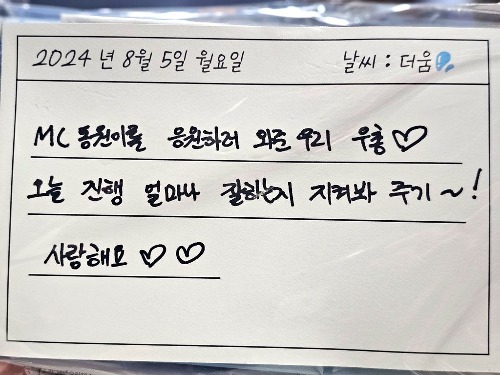 2024 년 8월 5일 월요일 날씨 : 더움💦
MC 동원이를 응원하러 와준 우리 우총♡
오늘 진행 얼마나 잘하는지 지켜봐 주기~!
사랑해요 ♡ ♡